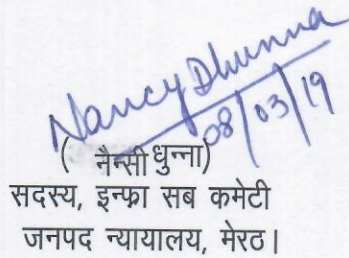 Nancy Dhunna
08/03/19
( नैन्सी धुन्ना)
सदस्य, इन्फ्रा सब कमेटी
जनपद न्यायालय, मेरठ।